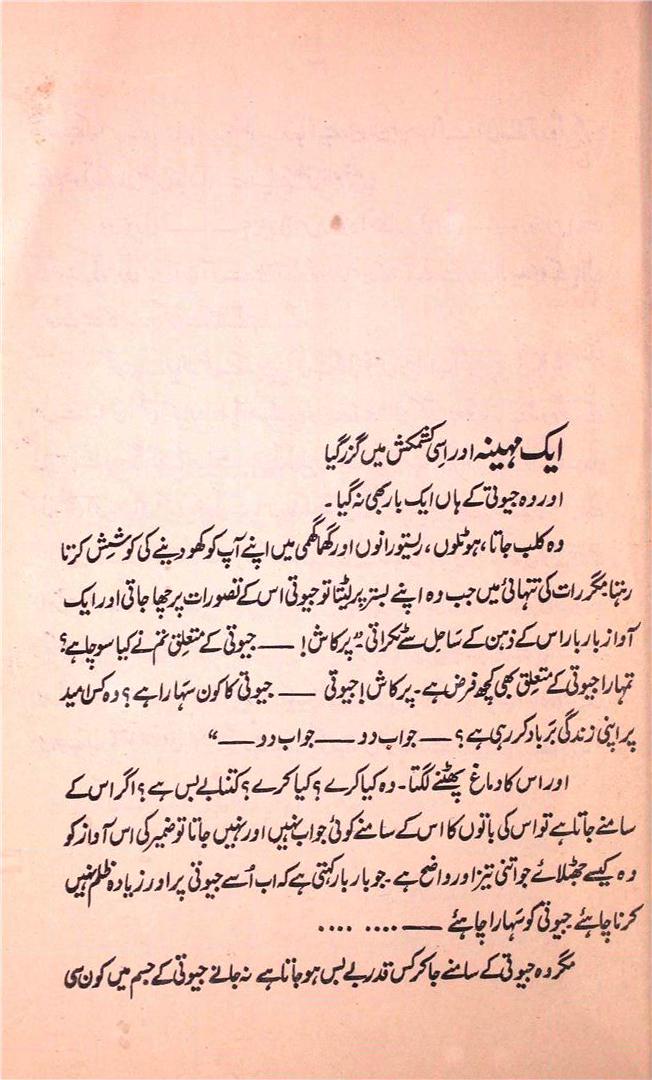 ایک مہینہ اور اسی کشمکش میں گزر گیا
اور وہ جیوتی کے ہاں ایک بار بھی نہ گیا۔
وہ کلب جاتا، ہوٹلوں، ریستورانوں اور گہما گہمی میں اپنے آپ کو کھو دینے کی کوشش کرتا
رہتا مگر رات کی تنہائی میں جب وہ اپنے بستر پر لیٹتا تو جیوتی اس کے تصورات پر چھا جاتی اور ایک
آواز بار بار اس کے ذہن کے ساحل سے ٹکراتی۔ "پرکاش! —— جیوتی کے متعلق تم نے کیا سوچا ہے؟
تمہارا جیوتی کے متعلق بھی کچھ فرض ہے۔ پرکاش! جیوتی —— جیوتی کا کون سہارا ہے؟ وہ کس امید
پر اپنی زندگی برباد کر رہی ہے؟ —— جواب دو —— جواب دو ——"
اور اس کا دماغ پھٹنے لگتا۔ وہ کیا کرے؟ کیا کرے؟ کتنا بے بس ہے؟ اگر اس کے
سامنے جاتا ہے تو اس کی باتوں کا اس کے سامنے کوئی جواب نہیں اور نہیں جاتا تو ضمیر کی اس آواز کو
وہ کیسے جھٹلائے جو اتنی تیز اور واضح ہے۔ جو بار بار کہتی ہے کہ اب اُسے جیوتی پر اور زیادہ ظلم نہیں
کرنا چاہئے جیوتی کو سہارا چاہئے —— .... ....
مگر وہ جیوتی کے سامنے جا کر کس قدر بے بس ہو جاتا ہے نہ جانے جیوتی کے جسم میں کون سی